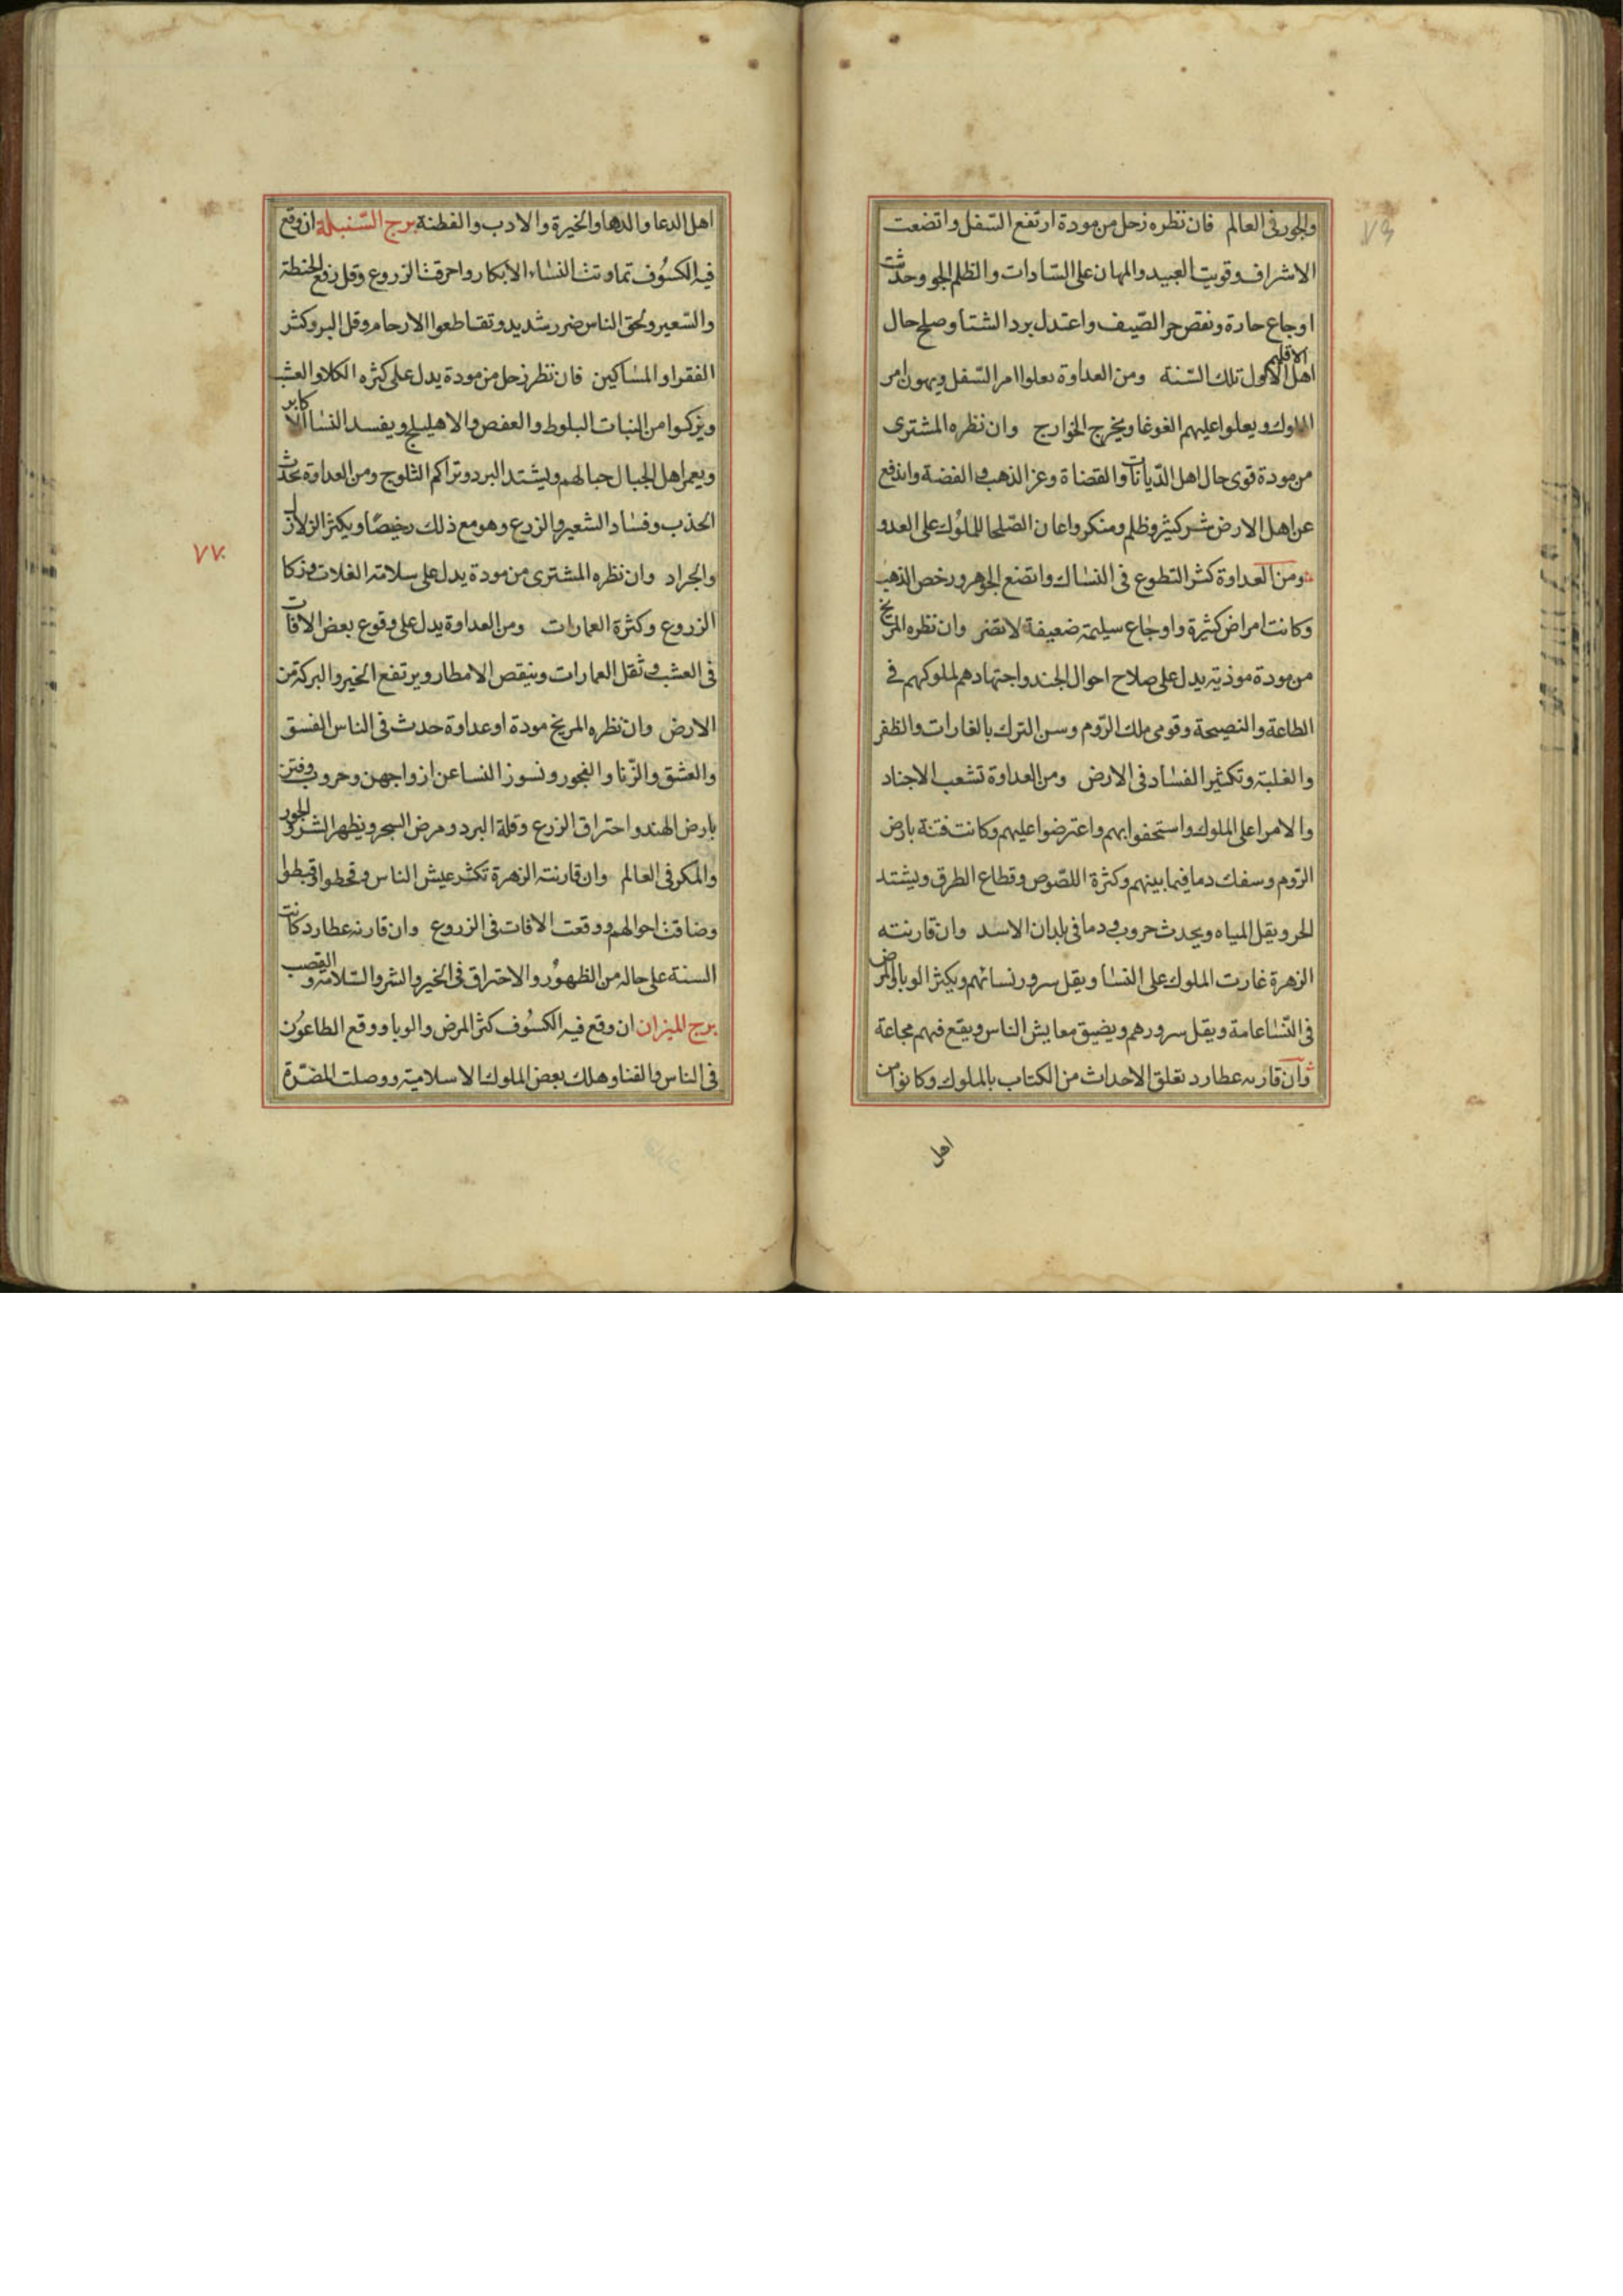 والجور فى العالم فان نظره زحل من مودة ارتفع السّفل واتضعت
الاشراف وقويت العبيد والمهان على السّادات والظلم الجو وحدثت
اوجاع حارة ونقص حر الصّيف واعتدل برد الشتا وصلح حال
اهل الاقليم الاول تلك السّنة ومن العداوة يعلوا امر السّفل ويهون امر
الملوك ويعلوا عليهم الغوغا ويخرج الخوارج وان نظره المشترى
من مودة قوى حال اهل الدّيانات والقضاة وعز الذهب و الفضة واندفع
عن اهل الارض شر كثير وظلم ومنكر واعان الصّلحا للملوُك على العدو
ومن العداوة كثر التطوع فى النسّاك واتضع الجوهر ورخص الذهب
وكانت امراض كثيرة واوجاع سليمة ضعيفة لا تضر وان نظره المريخ
من مودة موذية يدل على صلاح احوال الجند واجتهادهم لملوكهم فى
الطاعة والنصيحة وقوى ملك الرّوم وسن الترك بالغارات والظفر
والغلبة وتكثير الفساد فى الارض ومن العداوة تشعب الاجناد
والامرا على الملوك واستحفوا بهم واعترضوا عليهم وكانت فتنة بارض
الرّوم وسفك دما فيما بينهم وكثرة اللصّوص وقطاع الطرق ويشتد
الحر ويقل المياه ويحدث حروب و دما فى بلدان الاسد وان قارنته
الزهرة غارت الملوك على النسا ويقل سرور نسائهم ويكثر الوبا والمرض
فى النّسا عامة ويقل سرورهم ويضيق معايش الناس ويقع فيهم مجاعة
وان قارنه عطارد تعلق الاحداث من الكتاب بالملوك وكانوا من
اهل
اهل الدعا والدها والخيرة والادب والفطنة برج السّنبلة ان وقع
فيه الكسوُف تماوتت النساء الابكار واحرقت الزروع وقل زرع الحنطة
والشعير ولحق الناس ضرر شديد وتقاطعوا الارحام وقل البر وكثر
الفقرا والمساكين فان نظر زحل من مودة يدل على كثره الكلا والعشب
ويزكوا من النبات البلوط والعفص والاهليلج ويفسد النسا الاكابر
ويعمر اهل الجبال حبالهم ويشتد البرد وتراكم الثلوج ومن العداوة تحدث
الجذب وفساد الشعير والزرع وهو مع ذلك رخيصًا ويكثر الزلازل
والجراد وان نظره المشترى من مودة يدل على سلامة الغلات وزكا
الزروع وكثرة العمارات ومن العداوة يدل على وقوع بعض الافات
فى العشب و ثقل العمارات وينقص الامطار ويرتفع الخير والبركة من
الارض وان نظره المريخ مودة او عداوة حدث فى الناس الفسق
والعشق والزّنا والفجور ونسوز النسا عن ازواجهن وحروب وفتن
بارض الهند واحتراق الزرع وقلة البرد ومرض السحر ويظهر الشر والجور
والمكر فى العالم وان قارنته الزهرة تكثر عيش الناس وقحطوا قبطوا
وضاقت احوالهم ووقعت الافات فى الزروع وان قارنه عطارد كانت
السنة على حاله من الظهوُر والاحتراق فى الخير والشر والسّلامة والقصب
برج الميزان ان وقع فيه الكسوُف كثر المرض والوبا ووقع الطاعوُن
فى الناس والفنا وهلك بعض الملوك الاسلامية ووصلت المضرّة
٧٧